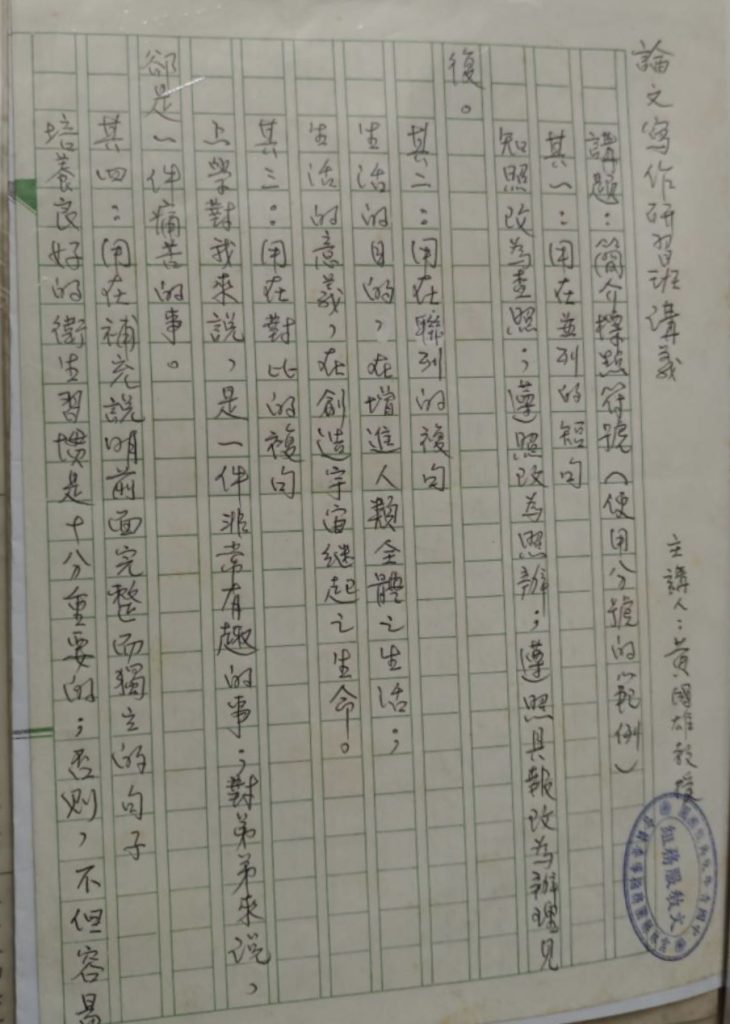 論文寫作研習班講義
主講人：黃國雄教授
講題：簡介標點符號（使用分號的範例）
其一：用在並列的短句
知照改為查照；遵照改為照辦；遵照具報改為辦理見
復。
其二：用在聯列的複句
生活的目的，在增進人類全體之生活；
生活的意義，在創造宇宙繼起之生命。
其三：用在對比的複句
上學對我來說，是一件非常有趣的事；對弟弟來說，
卻是一件痛苦的事。
其四：用在補充說明前面完整而獨立的句子
培養良好的衛生習慣是十分重要的；否則，不但容易
文教服務組